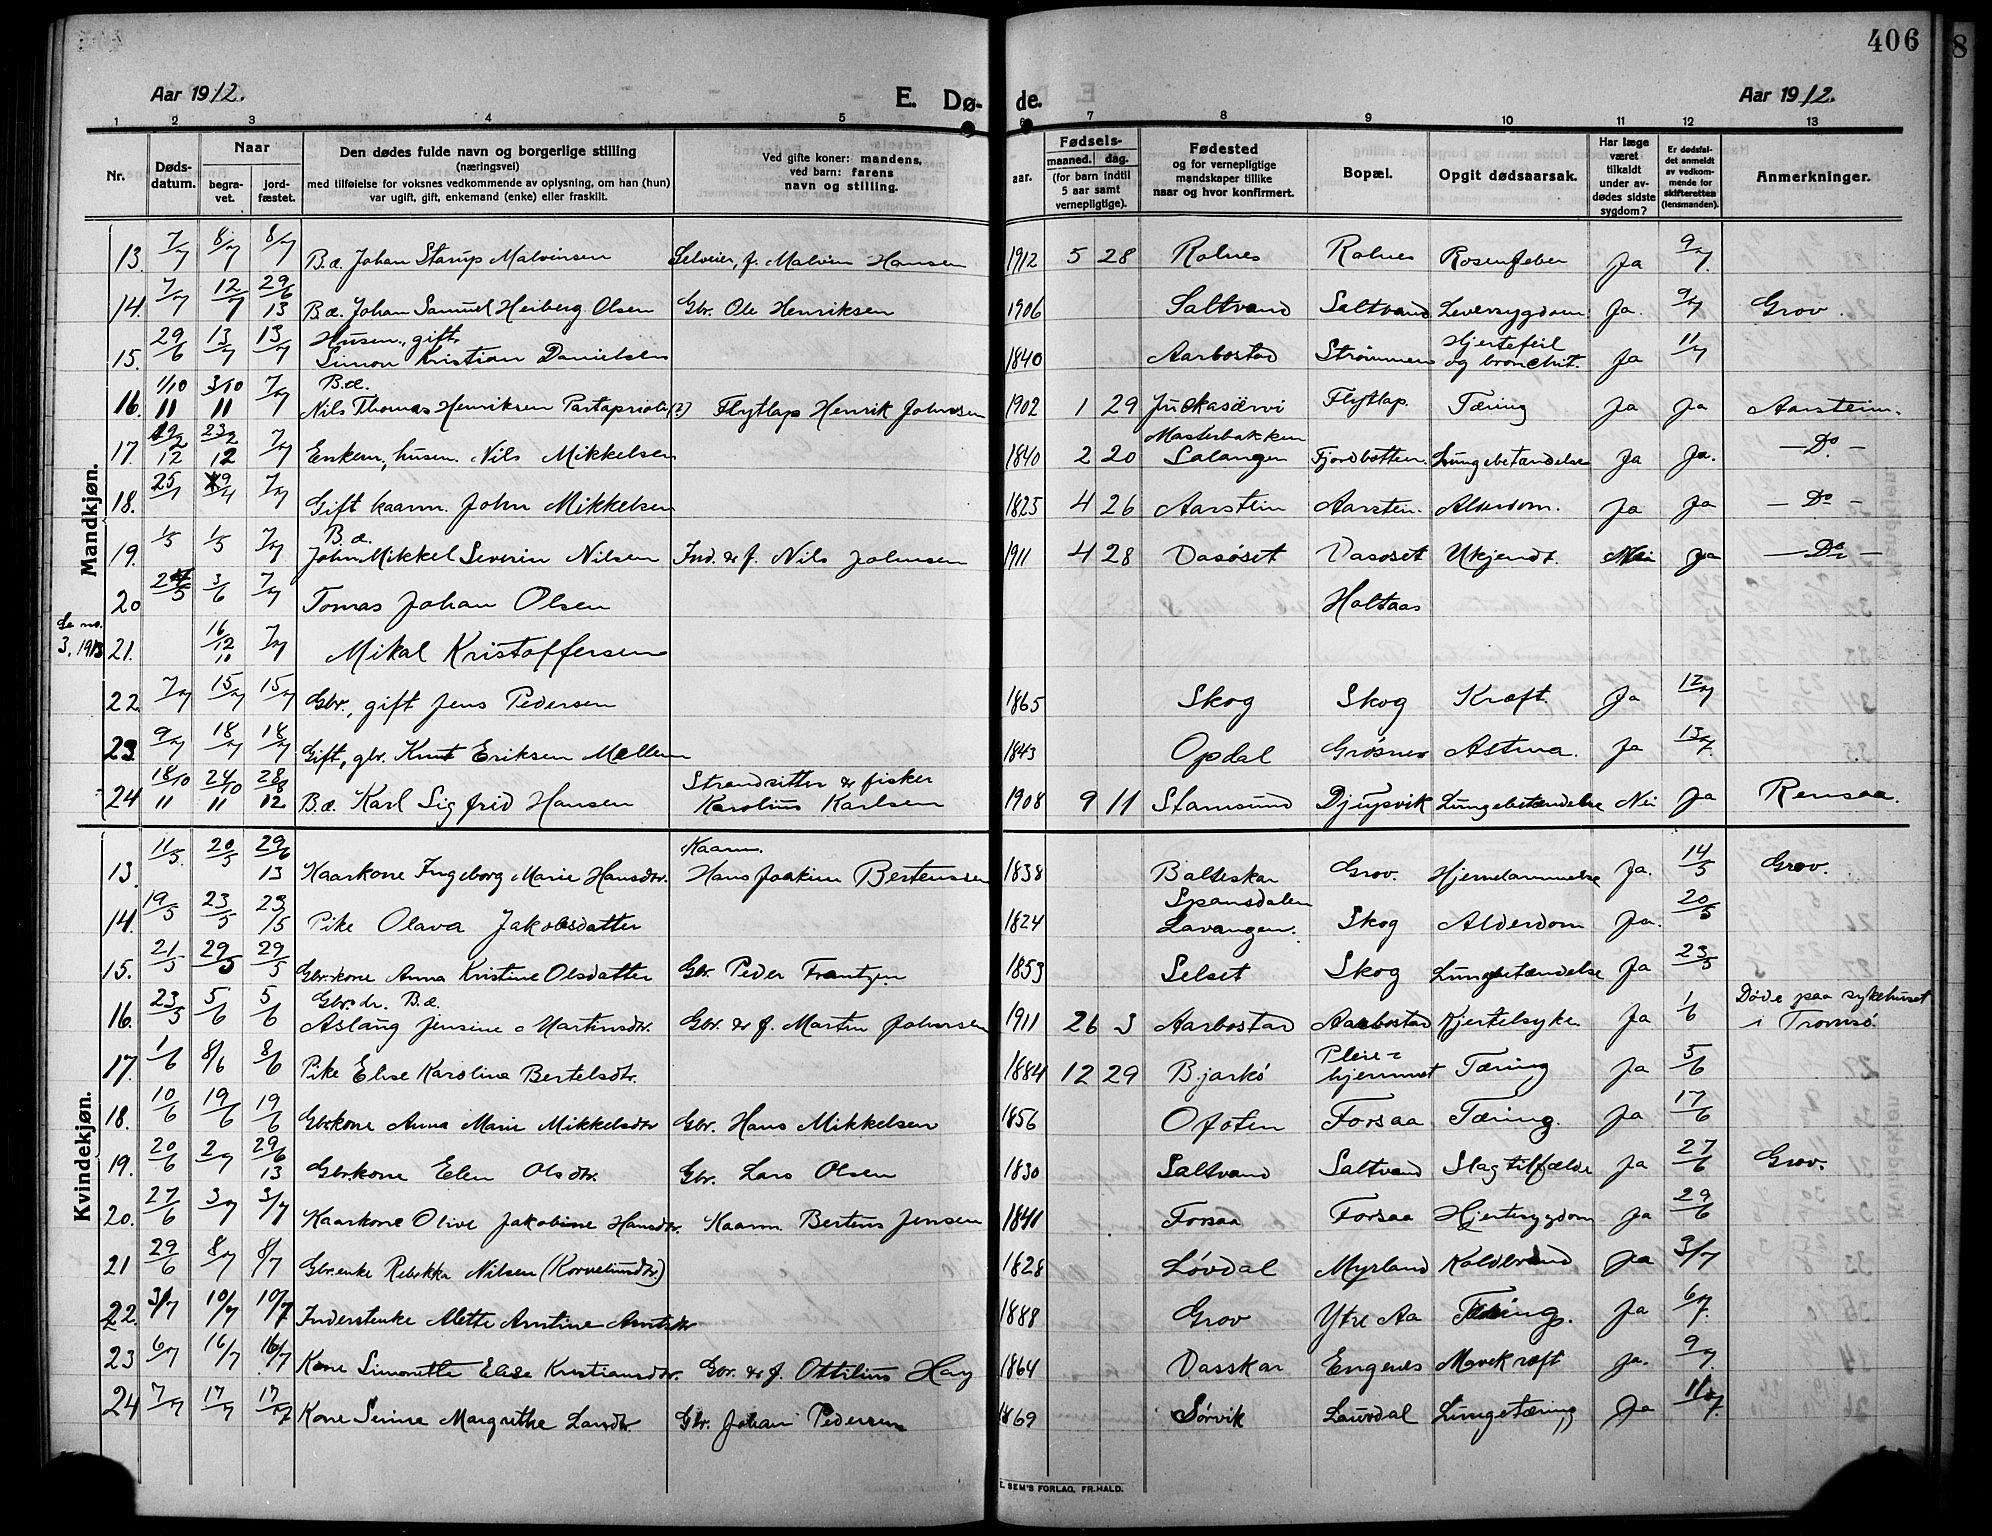 406
Aar 1912. E. Dø- de. Aar 1912.
1 2 3 4 5 6 7 8 9 10 11 12 13
Nr. Døds-datum. Naar begra-vet. jord-fæstet. Den dødes fulde navn og borgerlige stilling (næringsvei) med tilføielse for voksnes vedkommende av oplysning, om han (hun) var ugift, gift, enkemand (enke) eller fraskilt. Ved gifte koner: mandens, ved barn: farens navn og stilling. Fødsels- aar. maaned. dag. (for barn indtil 5 aar samt vernepligtige). Fødested og for vernepligtige mandskaper tillike naar og hvor konfirmert. Bopæl. Opgit dødsaarsak. Har læge været tilkaldt under av-dødes sidste sygdom? Er dødsfal-det anmeldt av vedkom-mende for skifteretten (lensmanden). Anmerkninger.
Mandkjøn.
13. 7/7 8/7 8/7 B.æ. Johan Starup Malvinsen Selveier, f. Malvin Hansen 1912 5 28 Rolnes Rolnes Rosenfeber Ja 9/7.
14. 7/7 12/7 29/6 13 B.æ. Johan Samuel Heiberg Olsen Gbr. Ole Henriksen 1906 Saltvand Saltvand Leversygdom Ja. 9/7 Grov.
15. 29/6 13/7 13/7 Husm., gift, Simon Kristian Danielsen 1840 Aarbostad Strømmen Hjertefeil og bronchit. Ja 11/7
16. 1/10 11 3/10 11 7/7 B.æ. Nils Thomas Henriksen Partaprioli (?) Flytlap Henrik Johnsen 1902 1 29 Juckasärvi Flytlap. Tæring Ja Ja Aarstein.
17. 19/2 12 23/2 12 7/7 Enkem., husm. Nils Mikkelsen 1840 2 20 Masterbakken Salangen Fjordbotten. Lungebetændelse Ja Ja. — Do. —
18. 25/1 29/4 7/7 Gift kaarm. John Mikkelsen 1825 4 26 Aarstein Aarsten. Alderdom. Ja Ja — Do —
19. 1/5 1/5 7/7 B.æ. John Mikkel Severin Nilsen Ind. & f. Nils Johnsen 1911 4 28 Vasøset Vasøset Ukjendt. Nei Ja — Do —
20 24/5 3/6 7/7 Tomas Johan Olsen Holtaas
Se no. 3, 1913 21. 16/12 10 7/7 Mikal Kristoffersen
22 7/7 15/7 15/7 Gbr., gift Jens Pedersen 1865 Skog Skog Kræft. Ja 12/7
23 9/7 18/7 18/7 Gift, gbr. Knut Eriksen Mellem 1843 Opdal Grøsnes Astma. Ja 13/7.
24 18/10 11 24/10 11 28/8 12 B.æ. Karl Sigfrid Hansen Strandsitter & fisker Karolius Karlsen 1908 9 11 Stamsund Djupvik Lungebetændelse Nei Ja Rensaa.
Kvindekjøn.
13. 11/5 20/5 29/6 13 Kaarkone Ingeborg Marie Hansdtr. Kaarm. Hans Joakim Bertenssen 1838 Balteskar Grov. Hjernelammelse Ja. 14/5 Grov.
14. 19/5 23/5 23/5 Pike Olava Jakobsdatter 1824 Spansdalen Lavangen. Skog Alderdom Ja. 20/5
15. 21/5 29/5 29/5 Gbr.kone Anna Kristine Olsdatter Gbr. Peder Frantzen 1853 Selset Skog Lungebetændelse Ja 23/5
16. 23/5 5/6 5/6 Gbr.dr. B.æ. Aslaug Jensine Martinsdtr. Gbr. & f. Martin Johnsen 1911 26 3 Aarbostad Aarbostad Kjertelsyke Ja 1/6 Døde paa sykehuset i Tromsø.
17. 1/6 8/6 8/6 Pike Elise Karoline Bertelsdtr. 1884 12 29 Bjarkø Pleie-hjemmet Tæring Ja 5/6
18. 10/6 19/6 19/6 Gbrkone Anna Marie Mikkelsdtr Gbr. Hans Mikkelsen 1856 Ofoten Forsaa Tæring. Ja 17/6
19. 20/6 2/7 29/6 13 Gbr.kone Elen Olsdtr. Gbr. Lars Olsen 1830 Saltvand Saltvand Slagtilfælde Ja 27/6 Grov.
20. 27/6 3/7 3/7 Kaarkone Olive Jakobine Hansdtr. Kaarm. Bertens Jensen 1841 Forsaa Forsaa Hjertesygdom Ja 29/6
21 29/6 8/7 8/7 Gbr.enke Rebekka Nilsen (Korneliusdtr.) 1828 Løvdal Myrland Koldbrand Ja 3/7
22. 3/7 10/7 10/7 Inderstenke Alette Arntine Arntsdr 1888 Grov Ytre Aa Tæring. Ja 6/7.
23 6/7 16/7 16/7 Kone Simonette Elise Kristiansdtr. Gbr. & f. Ottilius Hay 1864 Vasskar Engenes Mavekræft Ja. 9/7.
24 7/7 17/7 17/7 Kone Serine Margrethe Larsdtr. Gbr. Johan Pedersen 1869 Sørvik Laurdal Lungetæring Ja 11/7.
E. SEM'S FORLAG, FR.HALD.